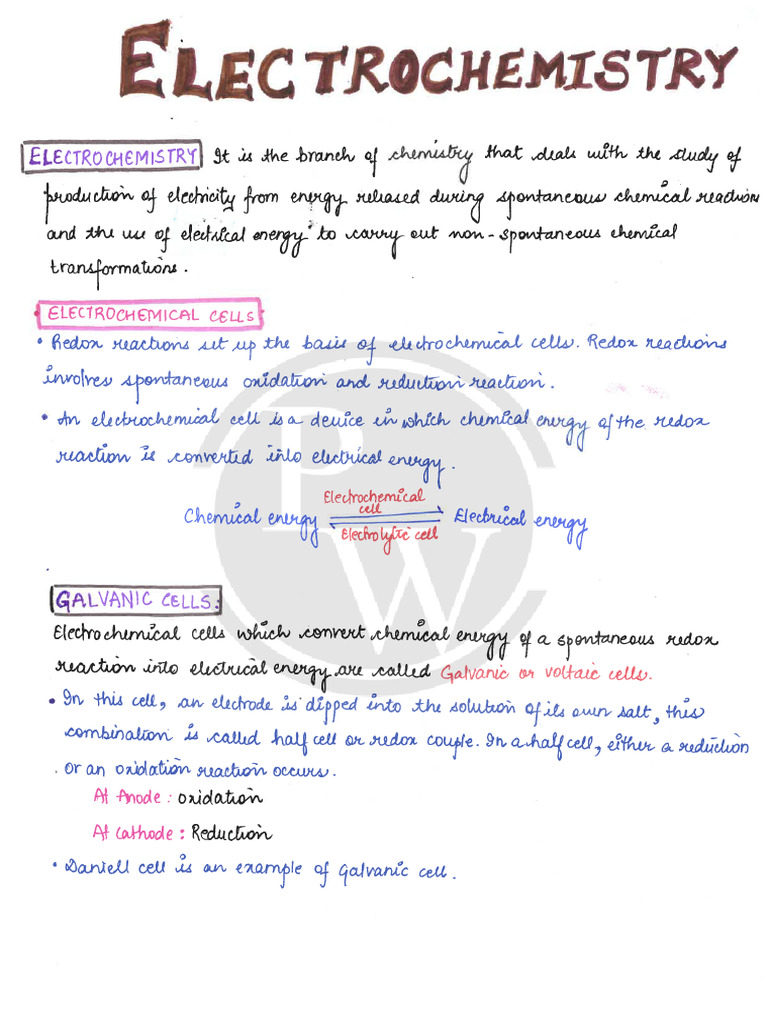 ELECTROCHEMISTRY
ELECTROCHEMISTRY It is the branch of chemistry that deals with the study of
production of electricity from energy released during spontaneous chemical reactions
and the use of electrical energy to carry out non-spontaneous chemical
transformations.
• ELECTROCHEMICAL CELLS •
• Redox reactions set up the basis of electrochemical cells. Redox reactions
involves spontaneous oxidation and reduction reaction.
• An electrochemical cell is a device in which chemical energy of the redox
reaction is converted into electrical energy.
Electrochemical
cell
Chemical energy ⇌ Electrical energy
Electrolytic cell
PW
GALVANIC CELLS:
Electrochemical cells which convert chemical energy of a spontaneous redox
reaction into electrical energy are called Galvanic or voltaic cells.
• In this cell, an electrode is dipped into the solution of its own salt, this
combination is called half cell or redox couple. In a half cell, either a reduction
or an oxidation reaction occurs.
At Anode : Oxidation
At Cathode : Reduction
• Daniell cell is an example of Galvanic cell.